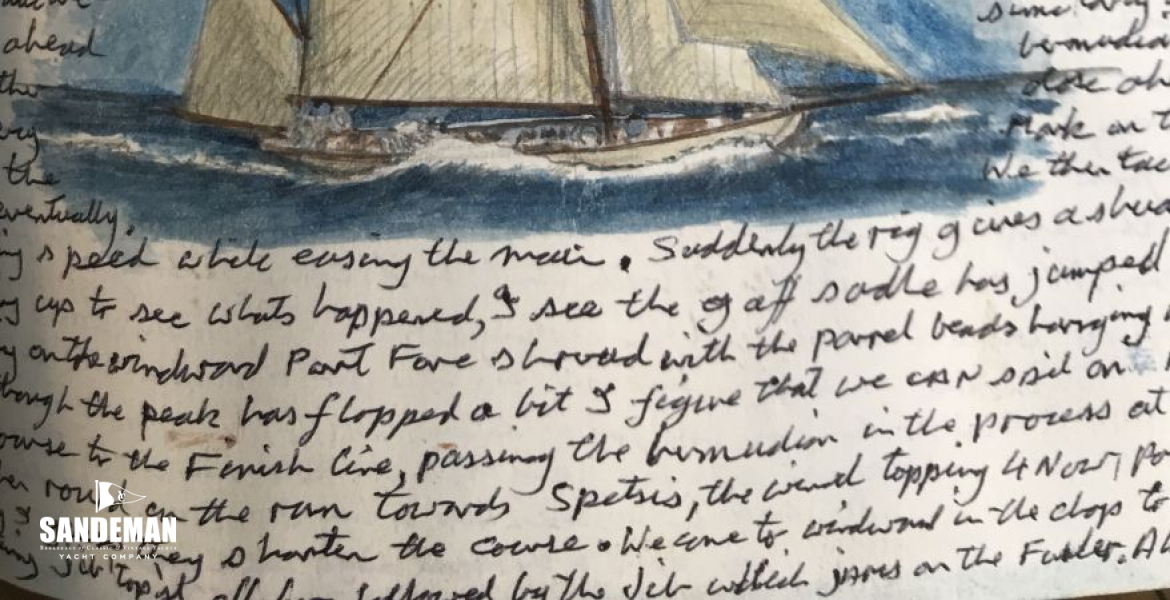 ahead
the
the
eventually
close
Mark on
We then tac
speed while easing the main. Suddenly the rig gives a shud
up to see whats happened, I see the gaff sadle has jumped
on the windward Port Fore shroud with the parrel beads hanging
though the peak has flopped a bit I figure that we can sail on
to the Finish line, passing the bermudian in the process at
round on the run towards Spetsis, the wind topping
they shorten the course. We come to windward in the chops to
followed by the Jib which jams on the Furler.
SANDEMAN
YACHT COMPANY